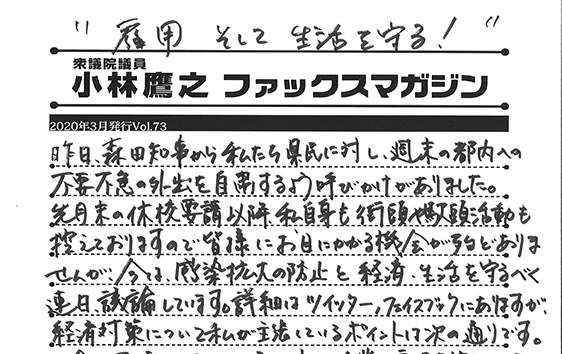 "雇用 そして 生活を守る！"
衆議院議員
小林鷹之 ファックスマガジン
2020年3月発行Vol.73
昨日、森田知事から私たち県民に対し、週末の都内への
不要不急の外出を自粛するよう呼びかけがありました。
先月末の休校要請以降、私自身も街頭や駅頭活動も
控えておりますので皆様にお目にかかる機会が殆どありま
せんが、今は、感染拡大の防止と経済・生活を守るべく
連日、議論しています。詳細はツイッター、フェイスブックにありますが、
経済対策について私が主張しているポイントは次の通りです。